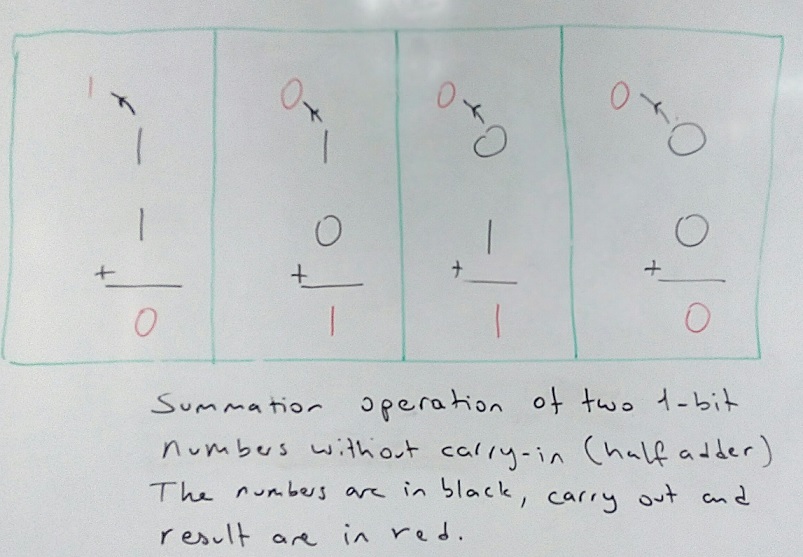 1 0 0 0
1 1 0 0
1 0 1 0
+ + + +
0 1 1 0
Summation operation of two 1-bit
numbers without carry-in (half adder)
The numbers are in black, carry out and
result are in red.